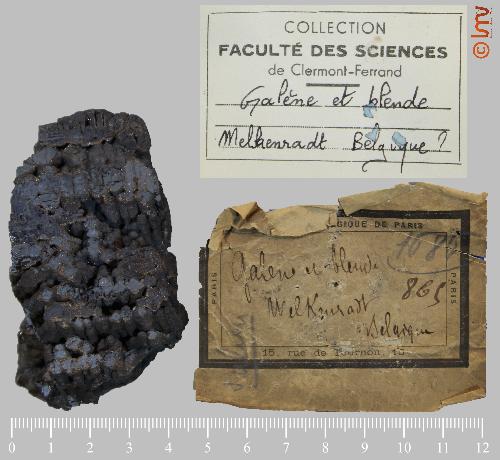 COLLECTION
FACULTÉ DES SCIENCES
de Clermont-Ferrand
Galène et blende
Melkenradt Belgique?
GIQUE DE PARIS
1084
865
PARIS
PARIS
Galène et blende
Welkenradt
Belgique
15, rue de Tournon, 15
0 1 2 3 4 5 6 7 8 9 10 11 12
© lmv